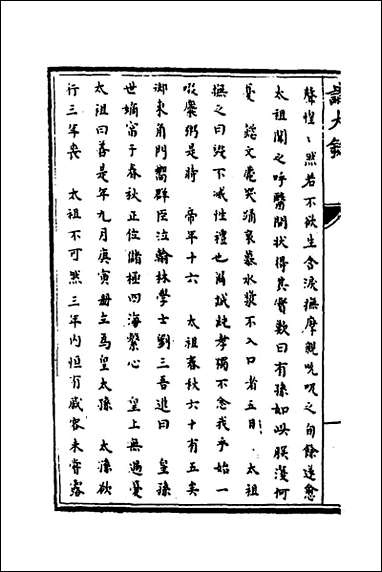 識大錄
聲惶〻然若不欲生含淚撫摩親吮吸之旬餘遂愈
太祖聞之呼醫問狀得其實歎曰有孫如此朕復何
憂 懿文薨哭踊哀慕水漿不入口者五日 太祖
撫之曰毀不滅性禮也爾誠純孝獨不念我乎始一
啜糜粥是時 帝年十六 太祖春秋六十有五矣
御東角門嚮群臣泣翰林學士劉三吾進曰 皇孫
世嫡富于春秋正位儲極四海繫心 皇上無過憂
太祖曰善是年九月庚寅冊立為皇太孫 太孫欲
行三年喪 太祖不可然三年內恒有戚容未嘗露